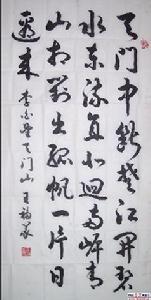 天门中断楚江開碧
水东流直北迴两岸青
山相對出孤帆一片日
邊来
李白望天门山